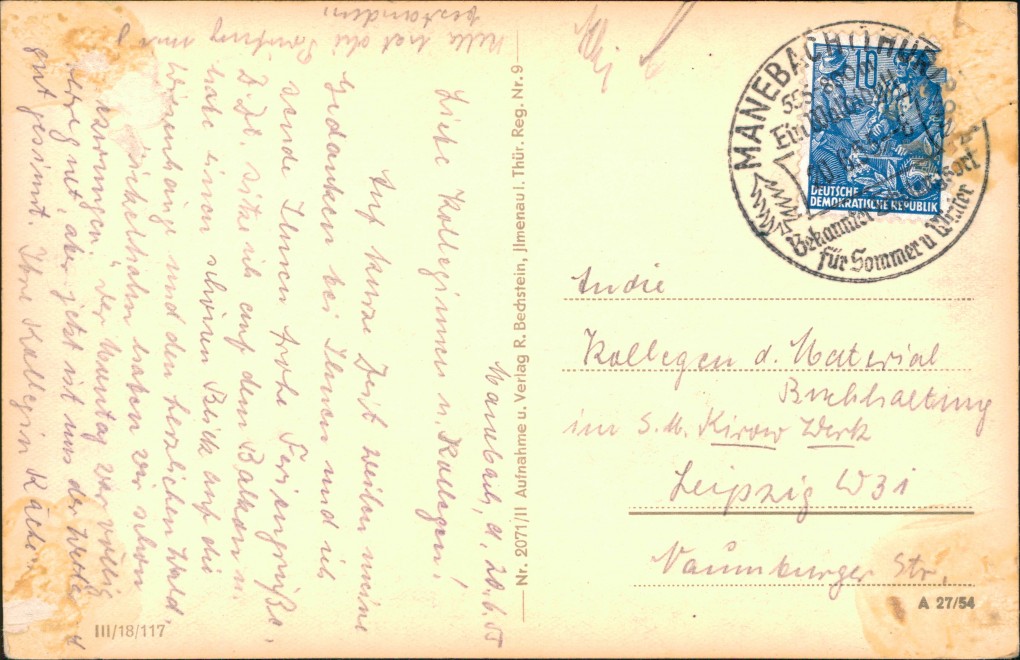 Manebach, d. 20.6.55
Liebe Kolleginnen u. Kollegen!
Auf kurze Zeit weilen meine
Gedanken bei Ihnen und ich
sende Ihnen frohe Feriengrüße.
Z. Zt. sitze ich auf dem Balkon u.
habe einen schönen Blick auf die
Wiesenhänge und den herrlichen Wald.
haben wir schon
bezwungen, der Montag war völlig
verregnet, aber jetzt ist uns der Wetter
gut gesinnt. Ihre Kollegin
hat die Prüfung
bestanden.
Nr. 2071/II Aufnahme u. Verlag R. Bechstein, Jlmenau i. Thür. Reg. Nr. 9
III/18/117
MANEBACH (THÜR
Bekannter
für Sommer u Winter
10
DEUTSCHE
DEMOKRATISCHE REPUBLIK
An die
Kollegen d. Material
Buchhaltung
im S. M. Kirow Werk
Leipzig W31
Naumburger Str.
A 27/54